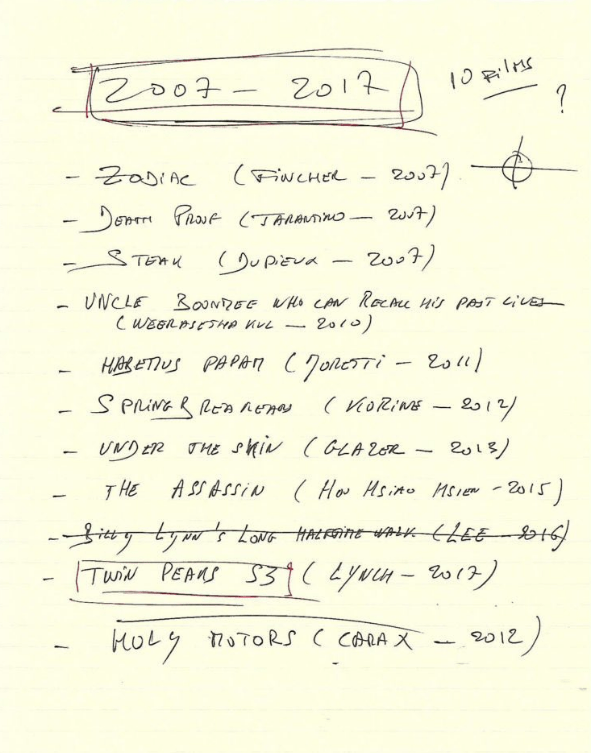 2007 - 2017
10 FilMS
?
- ZODiAC (FiNCHER - 2007)
- DEATH PROOF (TARANTINO - 2007)
- STEAK (DUPIEUX - 2007)
- UNCLE BOONMEE WHO CAN RECALL HIS PAST LIVES
(WEERASETHAKUL - 2010)
- HABEMUS PAPAM (MORETTI - 2011)
- SPRING BREAKERS (KORINE - 2012)
- UNDER THE SKIN (GLAZER - 2013)
- THE ASSASSiN (HOU HSIAO HSIEN - 2015)
- BILLY LYNN'S LONG HALFTIME WALK (LEE - 2016)
- TWiN PEAKS S3 (LYNCH - 2017)
- HOLY MOTORS (CARAX - 2012)